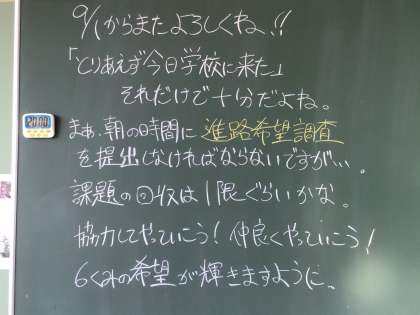 9/1からまたよろしくね!!
「とりあえず今日学校に来た」
それだけで十分だよね。
まぁ、朝の時間に進路希望調査
を提出しなければならないですが…。
課題の回収は1限ぐらいかな。
協力してやっていこう!仲良くやっていこう!
6くみの希望が輝きますように。
20:00